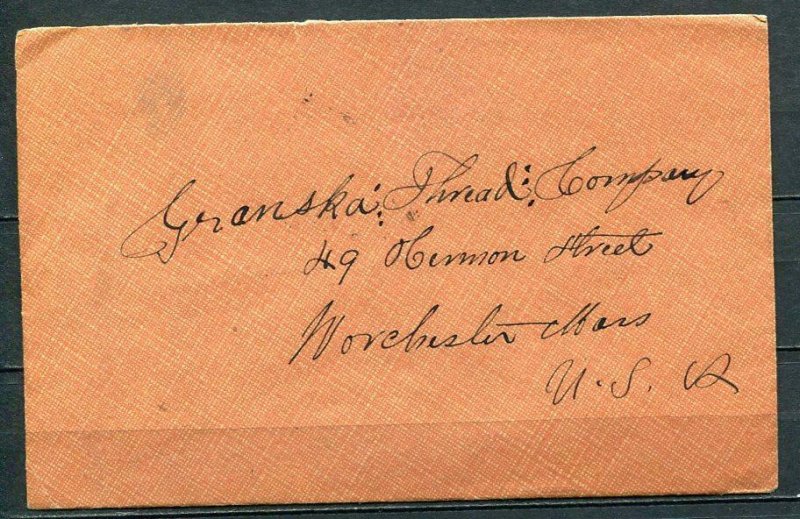 Granska: Thread: Company
49 Hermon Street
Worchester Mass
U. S. A